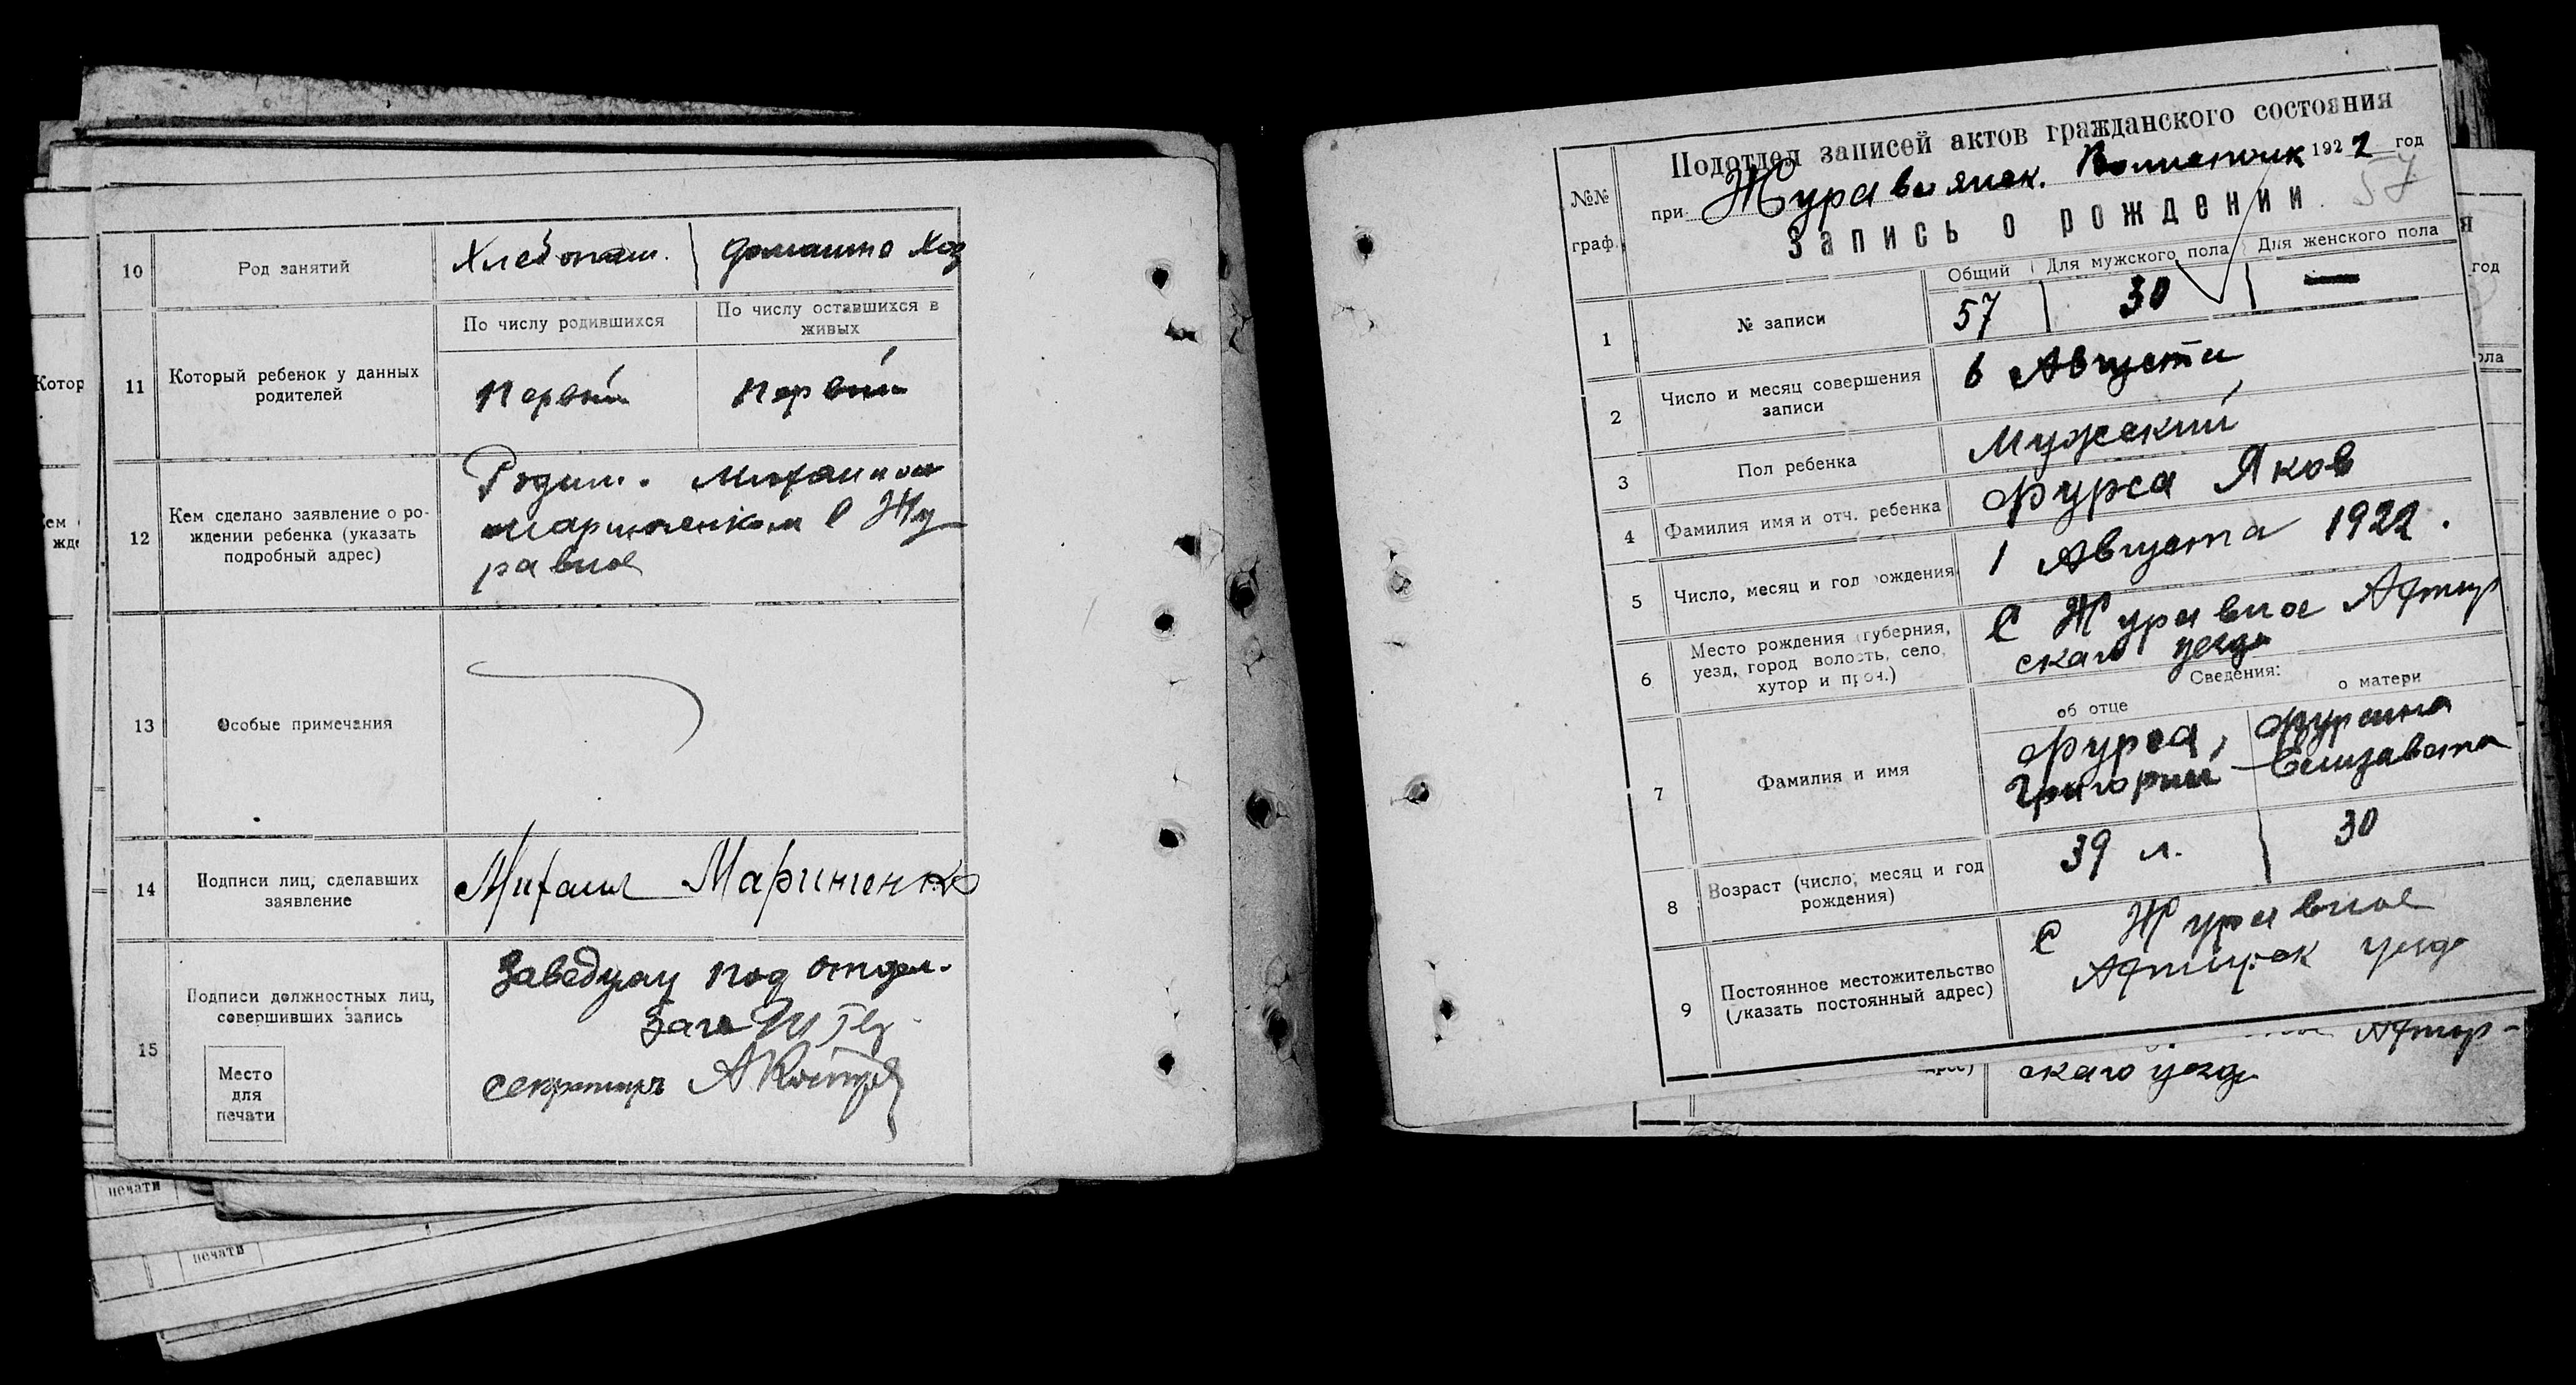 10
Род занятий
Хлебопаш.
домашно Хоз
11
Который ребенок у данных
родителей
По числу родившихся
По числу оставшихся в
живых
Первый
Первый
12
Кем сделано заявление о ро-
ждении ребенка (указать
подробный адрес)
Родит. Михаилом
Мариненком с Жу
равное
13
Особые примечания
14
Подписи лиц, сделавших
заявление
Михаил Мариненко
15
Подписи должностных лиц,
совершивших запись
Место
для
печати
Заведующ под отдел.
секретарь
печати
печати
Котор
№№
граф.
Подотдел записей актов гражданского состояния
при Журавлянск. Волисполк 1922 год
57
Запись о рождении
1
№ записи
Общий
Для мужского пола
Для женского пола
57
30
2
Число и месяц совершения
записи
6 Августа
3
Пол ребенка
Мужеский
4
Фамилия имя и отч. ребенка
Фурса Яков
5
Число, месяц и год рождения
1 Августа 1922.
6
Место рождения (губерния,
уезд, город волость, село,
хутор и проч.)
С Журавное Ахтыр
скаго уезда
Сведения:
об отце
о матери
7
Фамилия и имя
Фурса,
Григорий
Фурсина
Елизавета
8
Возраст (число, месяц и год
рождения)
39 л.
30
9
Постоянное местожительство
(указать постоянный адрес)
С Журавное
Ахтырск уезда
Ахтыр-
скаго уезда
год